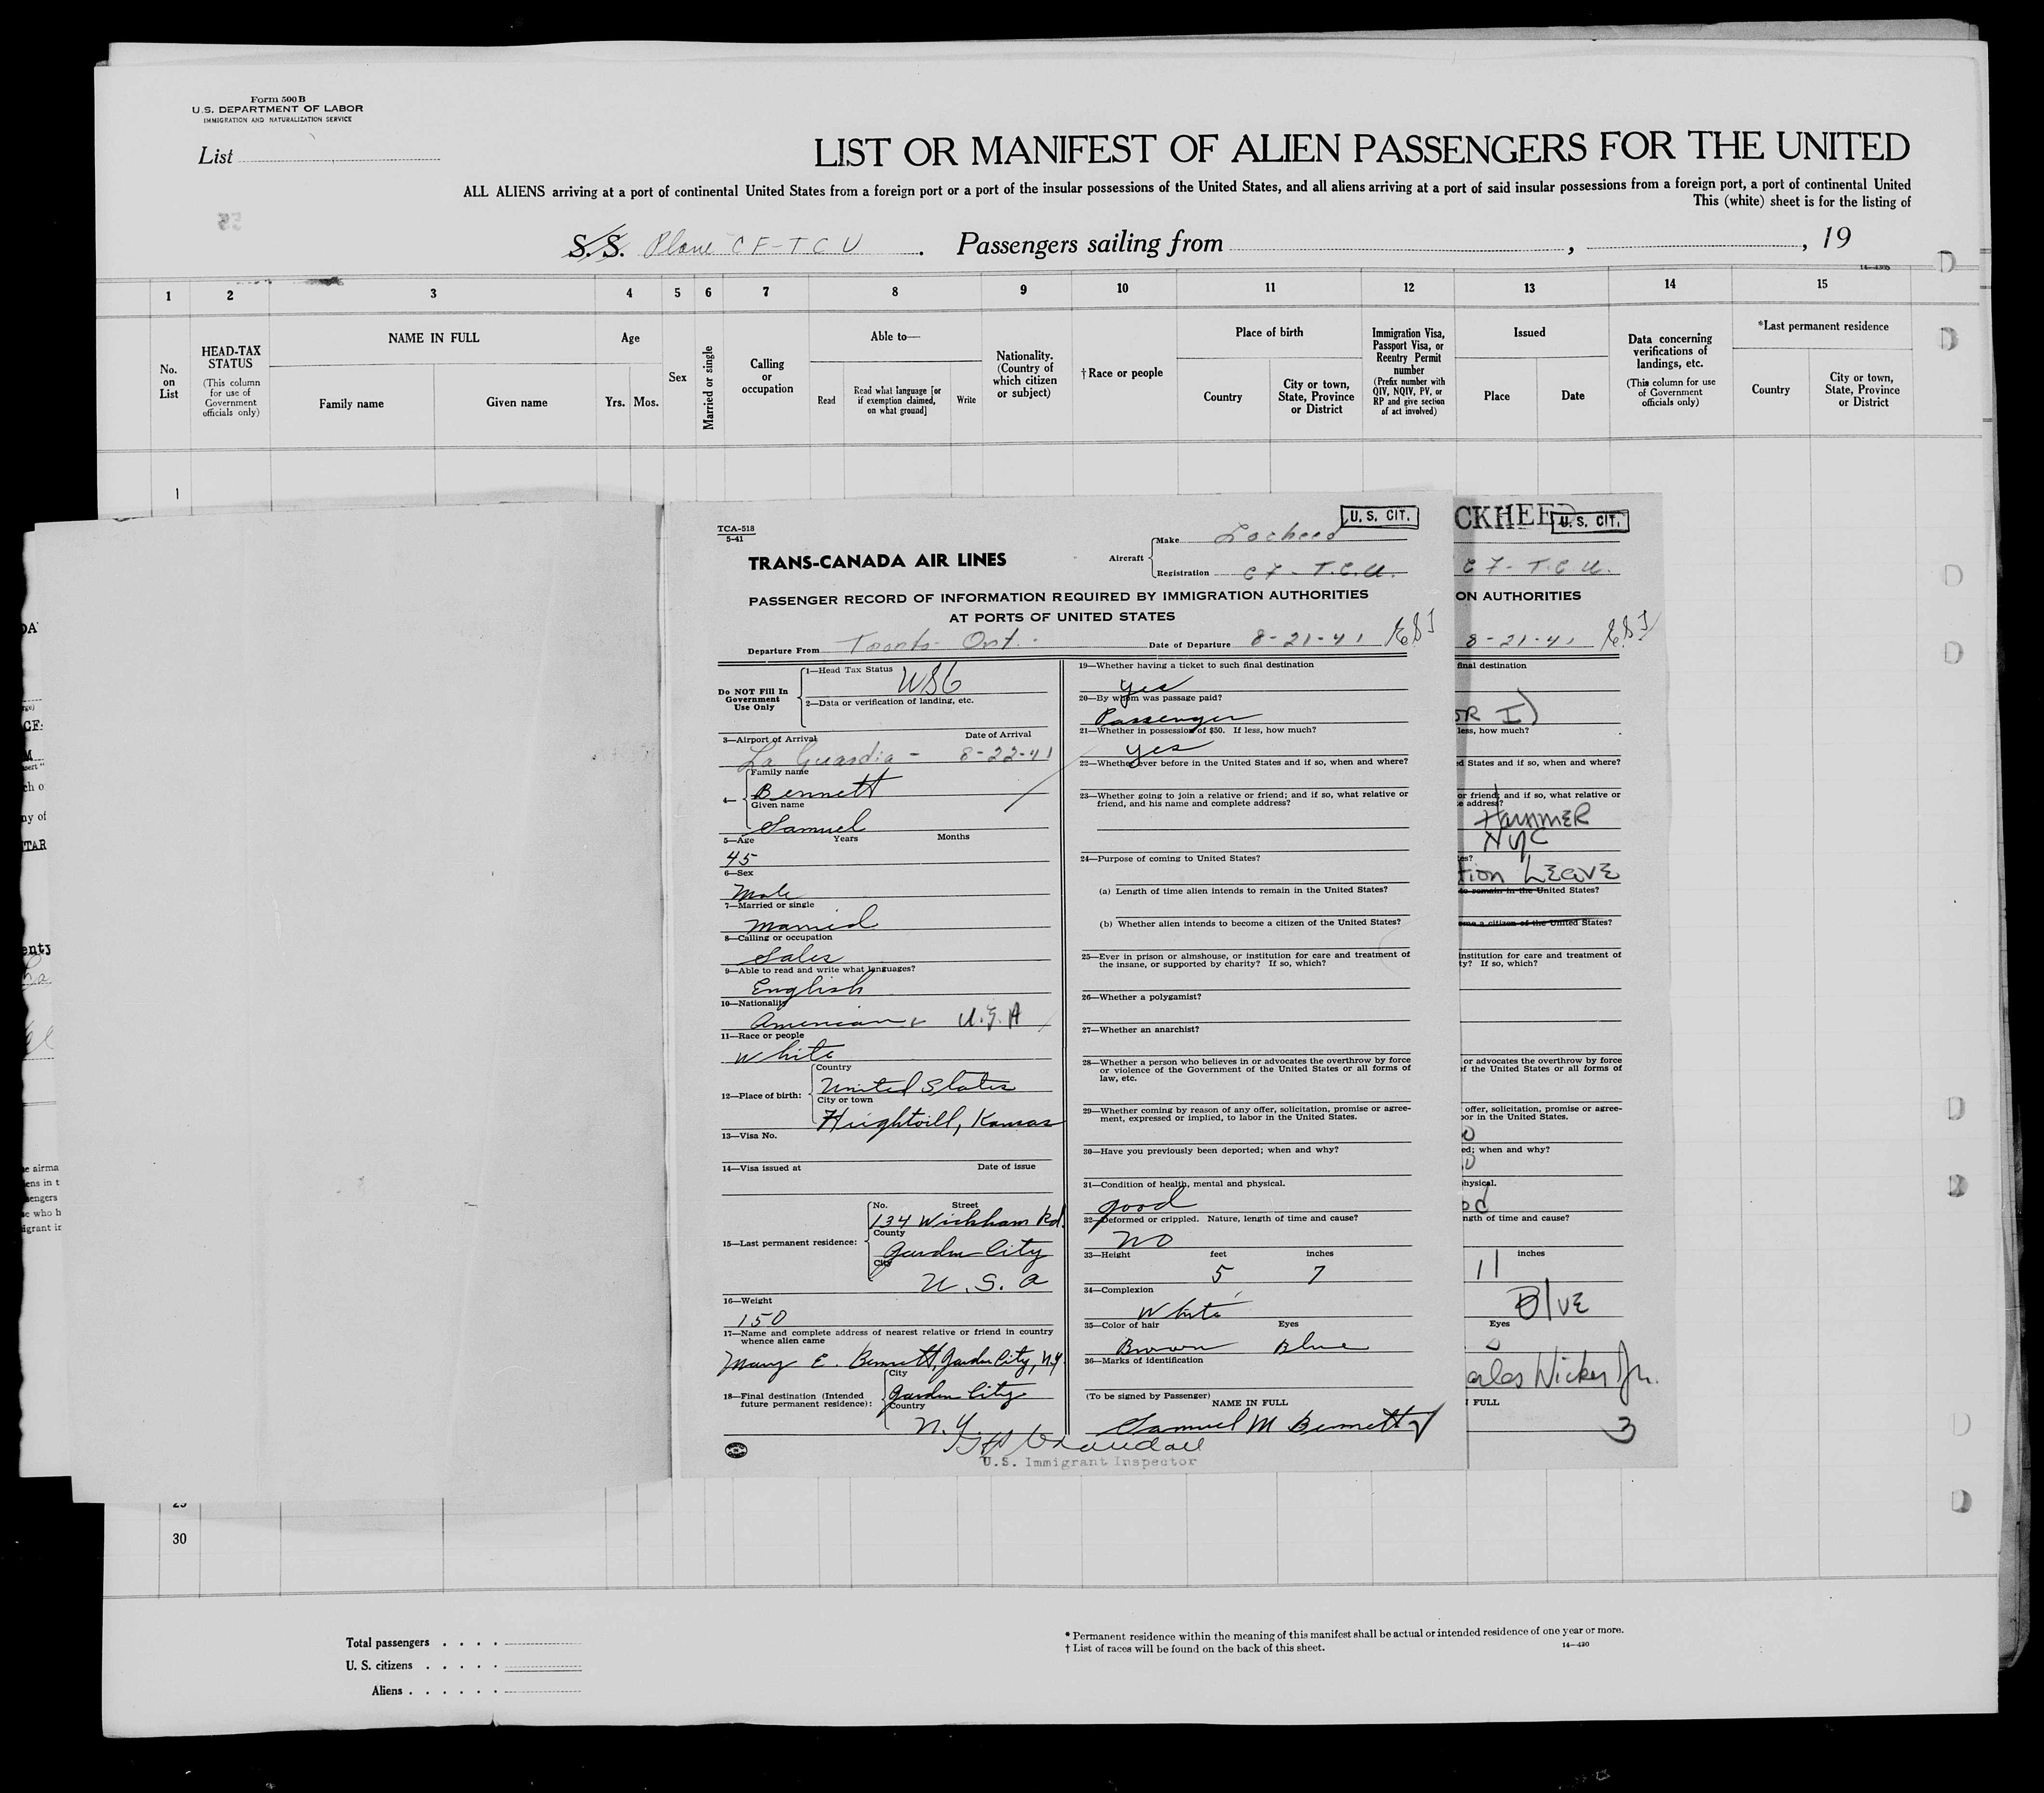 Form 500 B
U.S. DEPARTMENT OF LABOR
IMMIGRATION AND NATURALIZATION SERVICE
List
LIST OR MANIFEST OF ALIEN PASSENGERS FOR THE UNITED
ALL ALIENS arriving at a port of continental United States from a foreign port or a port of the insular possessions of the United States, and all aliens arriving at a port of said insular possessions from a foreign port, a port of continental United
This (white) sheet is for the listing of
S.S. Plane CF-TCU. Passengers sailing from , , 19
1 2 3 4 5 6 7 8 9 10 11 12 13 14 15
No. on List
HEAD-TAX STATUS
(This column for use of Government officials only)
NAME IN FULL
Family name
Given name
Age
Yrs. Mos.
Sex
Married or single
Calling or occupation
Able to—
Read
Read what language [or if exemption claimed, on what ground]
Write
Nationality. (Country of which citizen or subject)
†Race or people
Place of birth
Country
City or town, State, Province or District
Immigration Visa, Passport Visa, or Reentry Permit number
(Prefix number with QIV, NQIV, PV, or RP and give section of act involved)
Issued
Place
Date
Data concerning verifications of landings, etc.
(This column for use of Government officials only)
*Last permanent residence
Country
City or town, State, Province or District
1
TCA-518
5-41
U. S. CIT.
TRANS-CANADA AIR LINES
Aircraft
Make Locheed
Registration CF-T.C.U.
PASSENGER RECORD OF INFORMATION REQUIRED BY IMMIGRATION AUTHORITIES
AT PORTS OF UNITED STATES
Departure From Toronto Ont. Date of Departure 8-21-41
Do NOT Fill In Government Use Only
1—Head Tax Status
2—Data or verification of landing, etc.
3—Airport of Arrival Date of Arrival
La Guardia - 8-22-41
4— Family name
Bennett
Given name
Samuel
5—Age Years Months
45
6—Sex
Male
7—Married or single
Married
8—Calling or occupation
Sales
9—Able to read and write what languages?
English
10—Nationality
American U.S.A
11—Race or people
White
12—Place of birth:
Country
United States
City or town
Kansas
13—Visa No.
14—Visa issued at Date of issue
15—Last permanent residence:
No. Street
134 Wickham Rd.
County
Garden City
City
U.S.A
16—Weight
150
17—Name and complete address of nearest relative or friend in country
whence alien came
Mary E. Bennett, Garden City, N.Y.
18—Final destination (Intended
future permanent residence):
City
Garden City
Country
N.Y.
19—Whether having a ticket to such final destination
Yes
20—By whom was passage paid?
Passenger
21—Whether in possession of $50. If less, how much?
Yes
22—Whether ever before in the United States and if so, when and where?
23—Whether going to join a relative or friend; and if so, what relative or
friend, and his name and complete address?
24—Purpose of coming to United States?
(a) Length of time alien intends to remain in the United States?
(b) Whether alien intends to become a citizen of the United States?
25—Ever in prison or almshouse, or institution for care and treatment of
the insane, or supported by charity? If so, which?
26—Whether a polygamist?
27—Whether an anarchist?
28—Whether a person who believes in or advocates the overthrow by force
or violence of the Government of the United States or all forms of
law, etc.
29—Whether coming by reason of any offer, solicitation, promise or agree-
ment, expressed or implied, to labor in the United States.
30—Have you previously been deported; when and why?
31—Condition of health, mental and physical.
good
32—Deformed or crippled. Nature, length of time and cause?
No
33—Height feet inches
5 7
34—Complexion
White
35—Color of hair Eyes
Brown Blue
36—Marks of identification
(To be signed by Passenger)
NAME IN FULL
Samuel M Bennett
U.S. Immigrant Inspector
CKHEED
U. S. CIT.
CF-T.C.U.
ON AUTHORITIES
8-21-41
final destination
OR I)
less, how much?
d States and if so, when and where?
or friend; and if so, what relative or
e address?
Hammer
NYC
es?
tion Leave
to remain in the United States?
ome a citizen of the United States?
institution for care and treatment of
ty? If so, which?
or advocates the overthrow by force
of the United States or all forms of
offer, solicitation, promise or agree-
bor in the United States.
ed; when and why?
physical.
od
ngth of time and cause?
inches
11
Blue
Eyes
arles Wicker Jr.
FULL
3
30
Total passengers
U. S. citizens
Aliens
* Permanent residence within the meaning of this manifest shall be actual or intended residence of one year or more.
† List of races will be found on the back of this sheet.
14—430